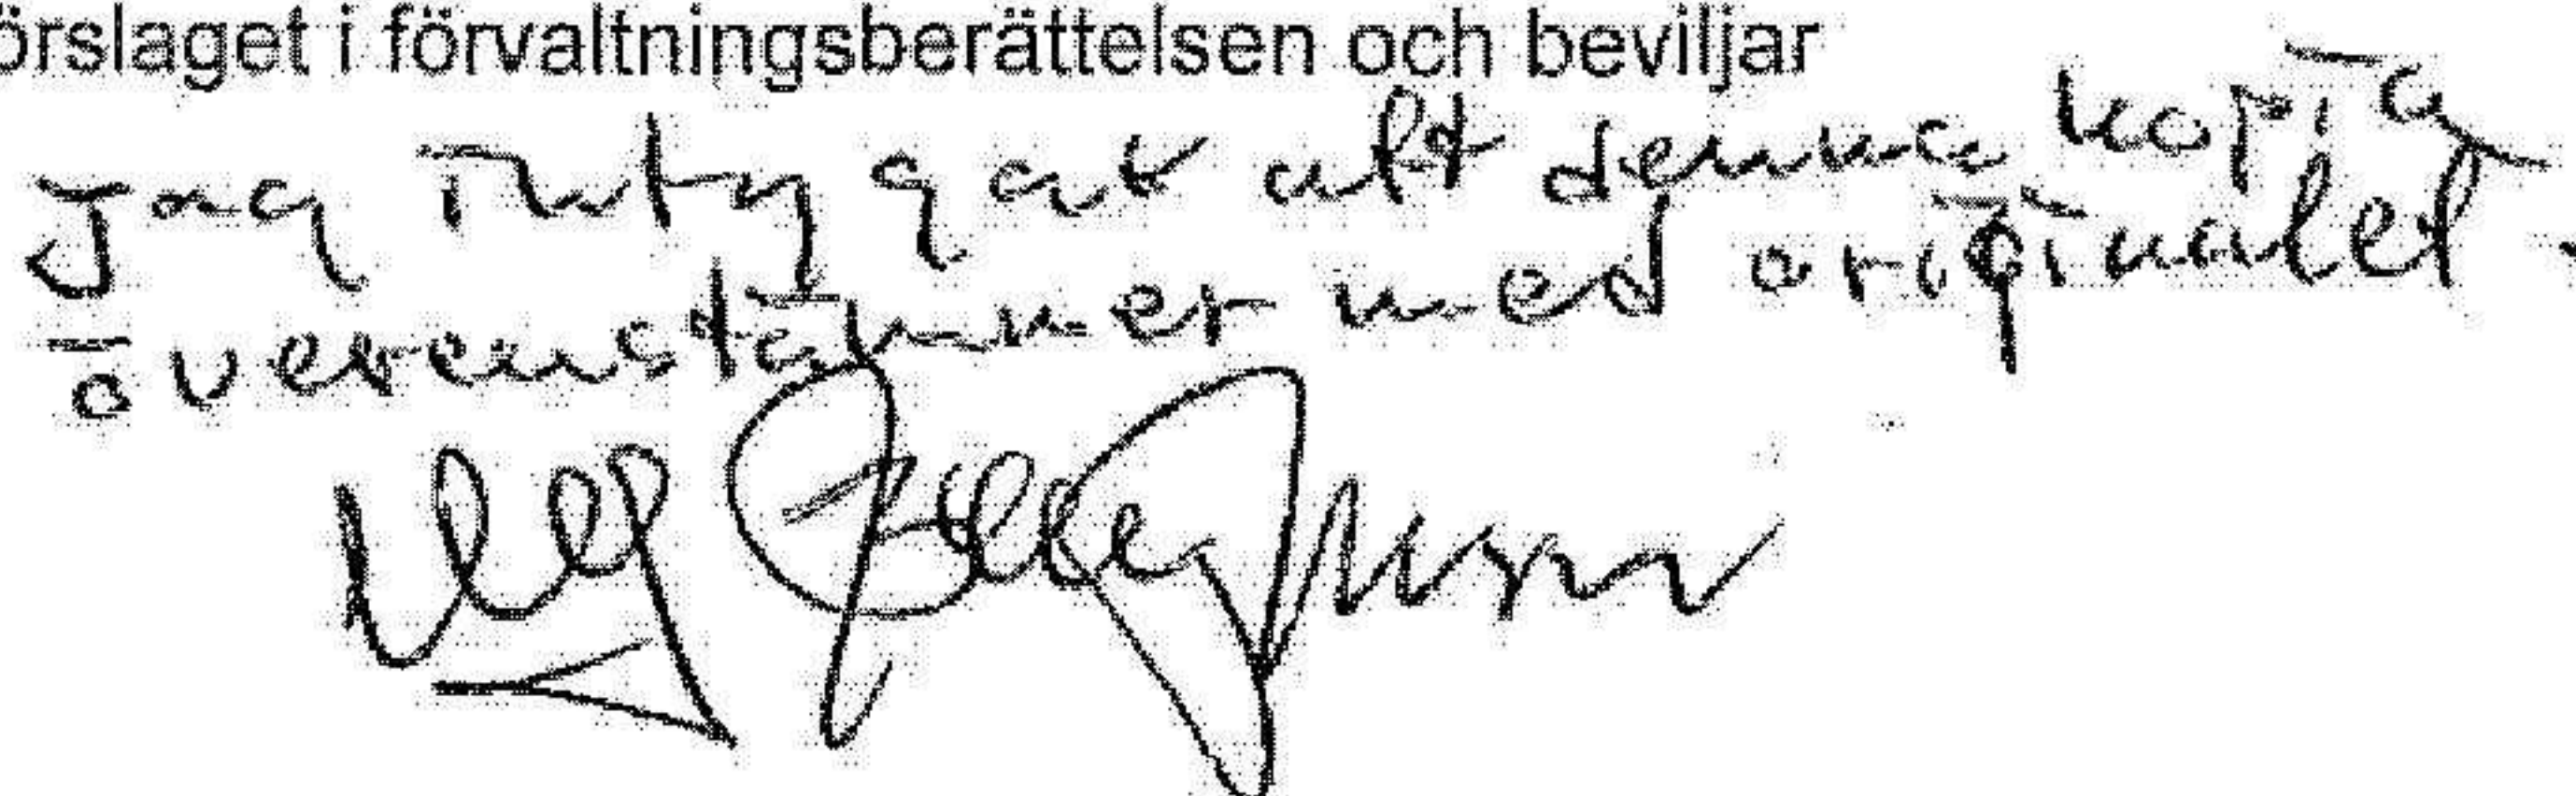 örslaget i förvaltningsberättelsen och beviljar
Jag intygat att denna kopia
överenstämmer med originalet.